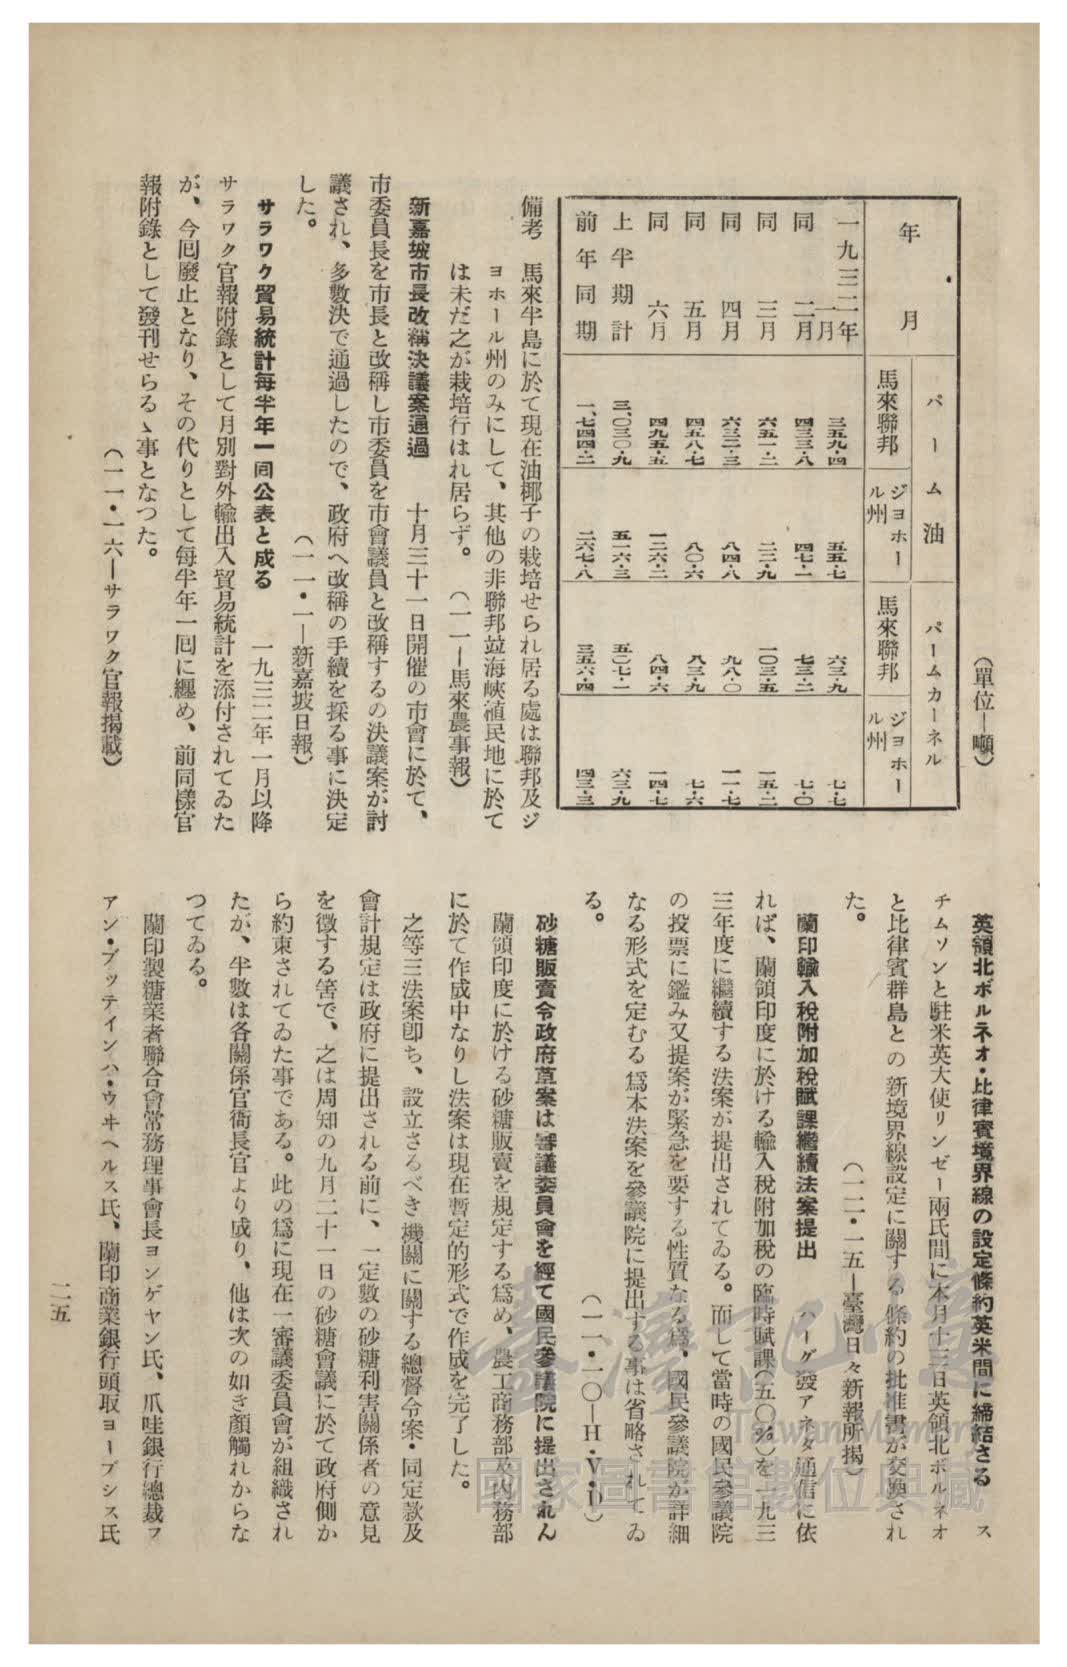 （單位―噸）
年　月
パーム油
パームカーネル
馬來聯邦
ジヨホール州
馬來聯邦
ジヨホール州
一九三二年一月　三五九・四　五五・七　六三・九　七・七
同　二月　四三三・八　四七・一　七三・二　七・〇
同　三月　六五一・二　二二・九　一〇三・五　一五・二
同　四月　六三二・三　八四・八　九八・〇　一一・七
同　五月　四五八・七　八〇・六　八三・九　七・六
同　六月　四九五・五　一二六・二　八四・六　一四・七
上半期計　三、〇三〇・九　五一六・三　五〇七・一　六三・九
前年同期　一、七四四・二　二六七・八　三五六・四　四三・三
備考　馬來半島に於て現在油椰子の栽培せられ居る處は聯邦及ジ
ヨホール州のみにして、其他の非聯邦竝海峽植民地に於て
は未だ之が栽培行はれ居らず。　（一一―馬來農事報）
新嘉坡市長改稱決議案通過　十月三十一日開催の市會に於て、
市委員長を市長と改稱し市委員を市會議員と改稱するの決議案が討
議され、多數決で通過したので、政府へ改稱の手續を採る事に決定
した。　（一一・一―新嘉坡日報）
サラワク貿易統計每半年一回公表と成る　一九三二年一月以降
サラワク官報附錄として月別對外輸出入貿易統計を添付されてゐた
が、今囘廢止となり、その代りとして每半年一囘に纒め、前同樣官
報附錄として發刊せらるゝ事となつた。
（一一・一六―サラワク官報揭載）
英領北ボルネオ・比律賓境界線の設定條約英米間に締結さる　ス
チムソンと駐米英大使リンゼー兩氏間に本月十三日英領北ボルネオ
と比律賓群島との新境界線設定に關する條約の批准書が交換され
た。　（一二・一五―臺灣日々新報所揭）
蘭印輸入稅附加稅賦課繼續法案提出　ハーグ發アネタ通信に依
れば、蘭領印度に於ける輸入稅附加稅の臨時賦課（五〇％）を一九三
三年度に繼續する法案が提出されてゐる。而して當時の國民參議院
の投票に鑑み又提案が緊急を要する性質なる爲、國民參議院が詳細
なる形式を定むる爲本法案を參議院に提出する事は省略されてゐ
る。　（一一・一〇―H・V・D）
砂糖販賣令政府草案は審議委員會を經て國民參議院に提出されん
蘭領印度に於ける砂糖販賣を規定する爲め、農工商務部及內務部
に於て作成中なりし法案は現在暫定的形式で作成を完了した。
之等三法案卽ち、設立さるべき機關に關する總督令案・同定款及
會計規定は政府に提出される前に、一定數の砂糖利害關係者の意見
を徵する筈で、之は周知の九月二十一日の砂糖會議に於て政府側か
ら約束されてゐた事である。此の爲に現在一審議委員會が組織され
たが、半數は各關係官衙長官より成り、他は次の如き顏觸れからな
つてゐる。
蘭印製糖業者聯合會常務理事會長ヨンゲヤン氏、爪哇銀行總裁フ
アン・ブッテインハ・ウヰヘルス氏、蘭印商業銀行頭取ヨープシス氏
一一五
臺灣記憶
Taiwan Memory
國家圖書館數位典藏